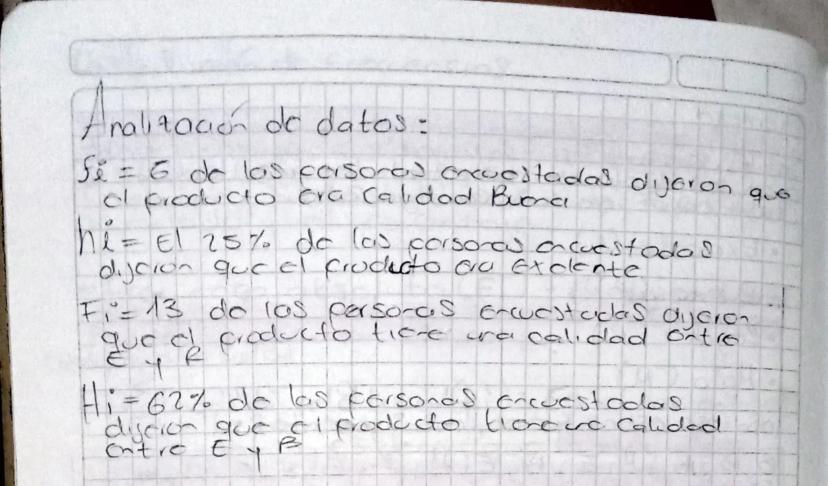 Analización de datos:
fi = 6 de las personas encuestadas dijeron que
el producto era Calidad Buena
hi = El 25% de las personas encuestadas
dijeron que el producto era Exelente
Fi = 13 de las personas encuestadas dijeron
que el producto tiene una calidad entre
E y R
Hi = 62% de las personas encuestadas
dijeron que el producto tiene una Calidad
entre E y B